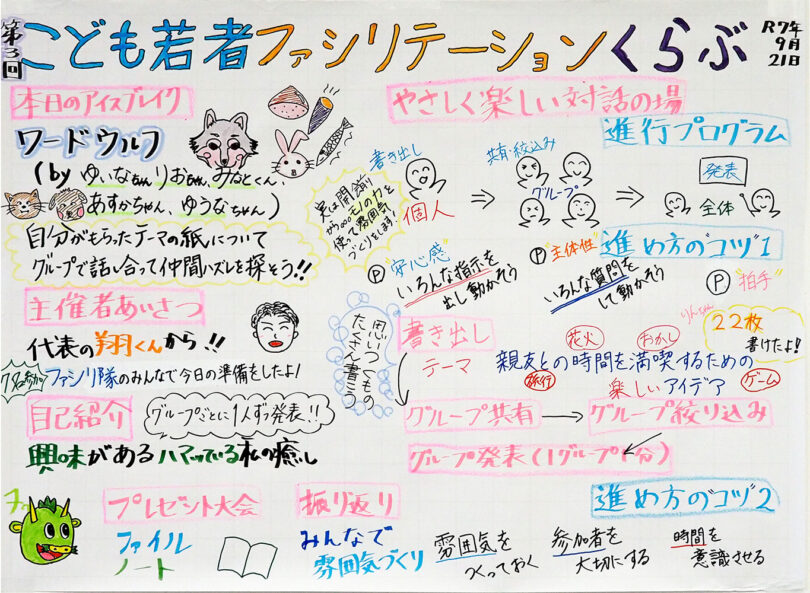 第3回
こども若者ファシリテーションくらぶ
R7年
9月
21日
本日のアイスブレイク
ワードウルフ
(by ゆいなちゃん、りおちゃん、みなとくん、
あすかちゃん、ゆうなちゃん)
自分がもらったテーマの紙について
グループで話し合って仲間ハズレを探そう!!
主催者あいさつ
代表の翔くんから!!
ファシリ隊のみんなで今日の準備をしたよ!
自己紹介
グループごとに1人ずつ発表!!
興味がある ハマッている 私の癒し
プレゼント大会
ファイル
ノート
振り返り
みんなで
雰囲気づくり
やさしく楽しい対話の場
進行プログラム
書き出し
個人
⇒
共有・絞込み
グループ
⇒
発表
全体
使って雰囲気
づくりをします!
進め方の"コツ"1
Ⓟ"安心感"
いろんな指示を
出し動かそう
Ⓟ"主体性"
いろんな質問を
して動かそう
Ⓟ"拍手"
思いつくもの
たくさん書こう
書き出し
22枚
書けたよ!
テーマ
親友との時間を満喫するための
楽しいアイデア
花火
おかし
旅行
ゲーム
グループ共有
→
グループ絞り込み
グループ発表(1グループ1分)
進め方の"コツ"2
雰囲気を
つくっておく
参加者を
大切にする
時間を
意識させる